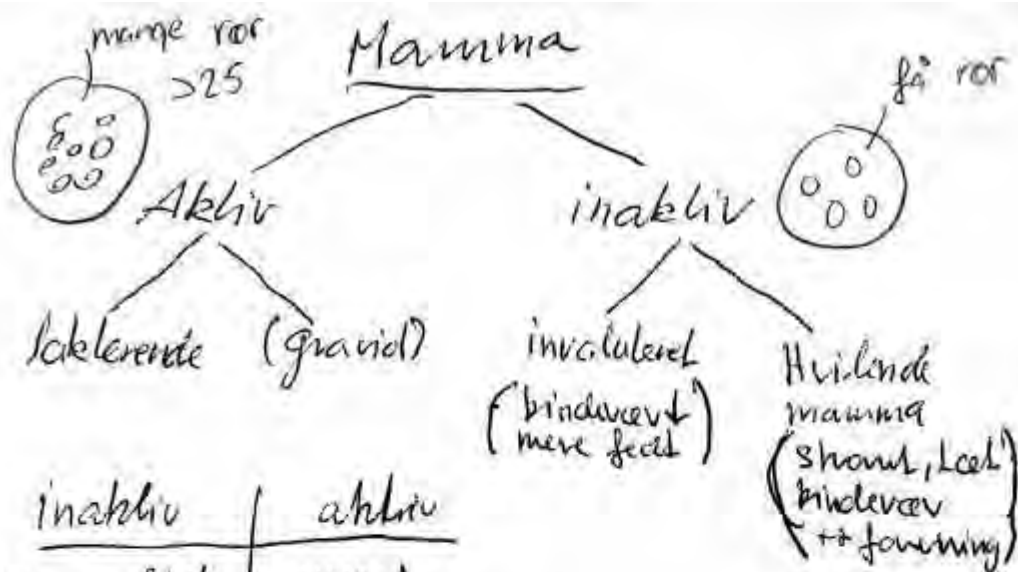 mange rør
>25
Mamma
få rør
Aktiv
inaktiv
lakterende
(gravid)
involuteret
(bindevæv↓
mere fedt)
Hvilende
mamma
(stramt, tæt
bindevæv
farvning)
inaktiv
aktiv